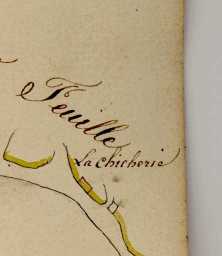 Feuille
La chicherie